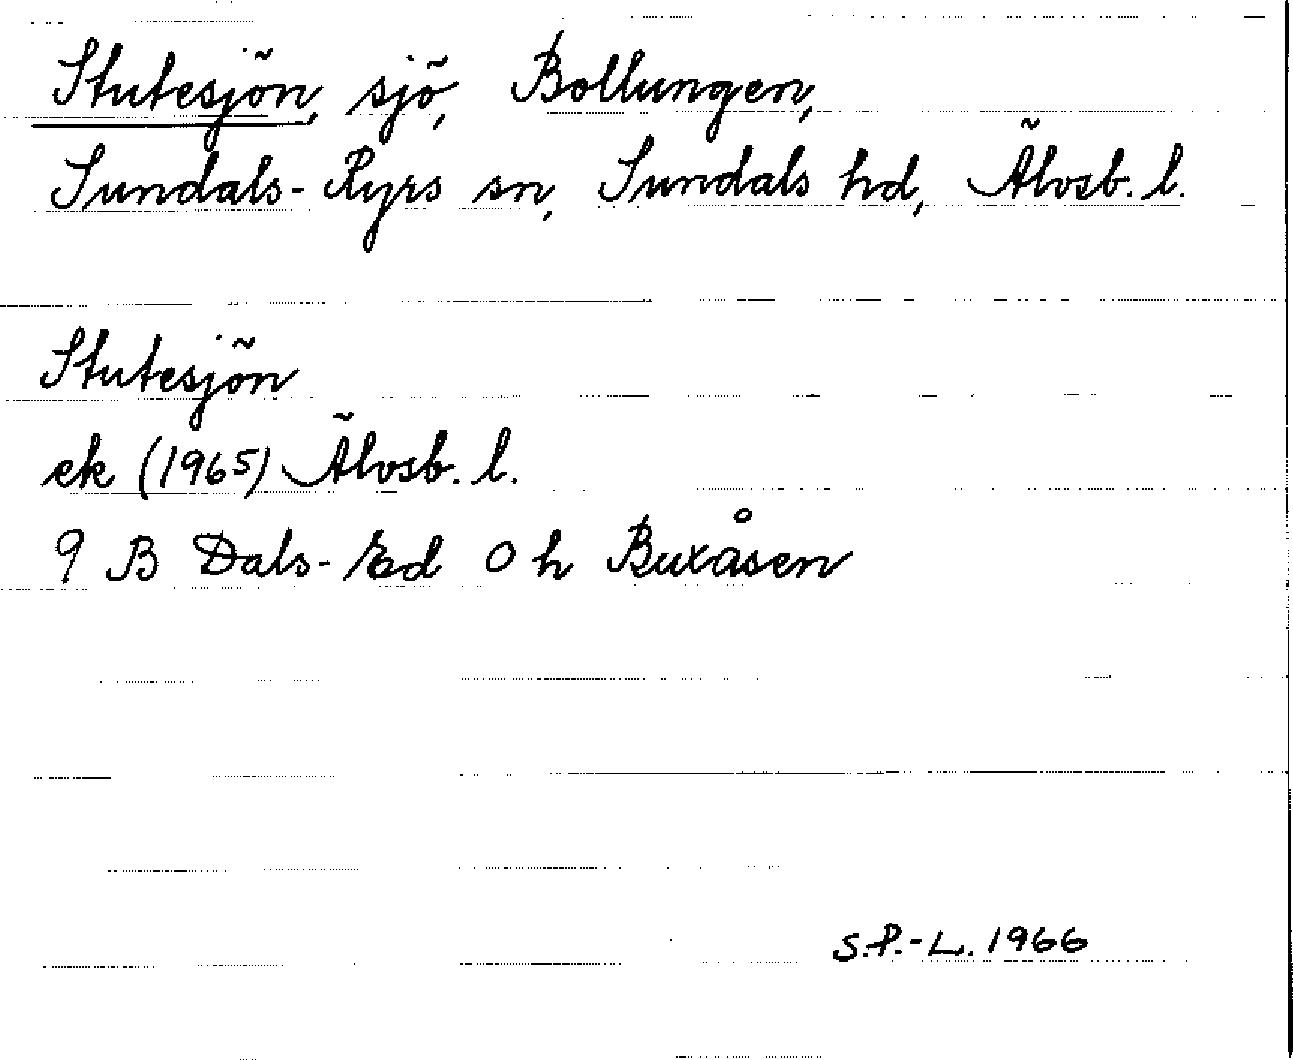 Stutesjön, sjö, Bollungen,
Sundals-Ryrs sn, Sundals hd, Älvsb. l.
Stutesjön
ek (1965) Älvsb. l.
9 B Dals-Ed 0 h Buxåsen
S.P.-L. 1966